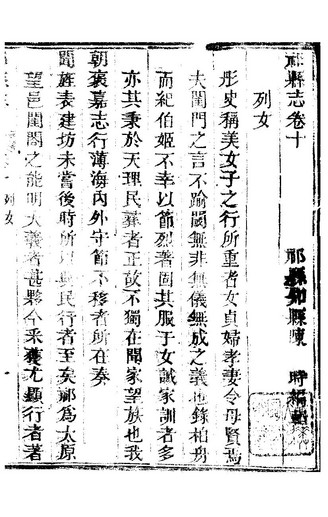 祁縣志卷十
祁縣知縣陳 時編輯
列女
彤史稱美女子之行所重者女貞婦孝妻令母賢焉
夫閨門之言不踰閾無非無儀無成之義也錄柏舟
而紀伯姬不幸以節烈著固其服于女誡家訓者多
亦其秉於天理民彝者正故不獨在聞家望族也我
朝褒嘉志行薄海內外守節不移者所在奏
聞旌表建坊未嘗後時所以興民行者至矣祁為太原
望邑閨閤之能明大義者甚夥今采其尤顯行者著
列女